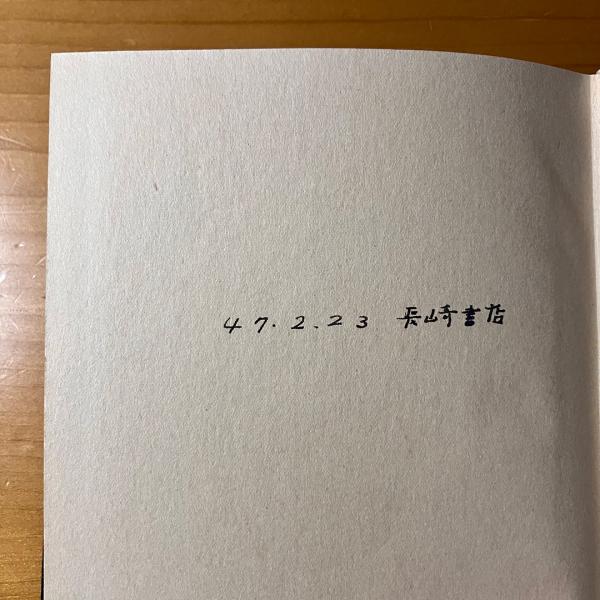 47.2.23 長崎書店